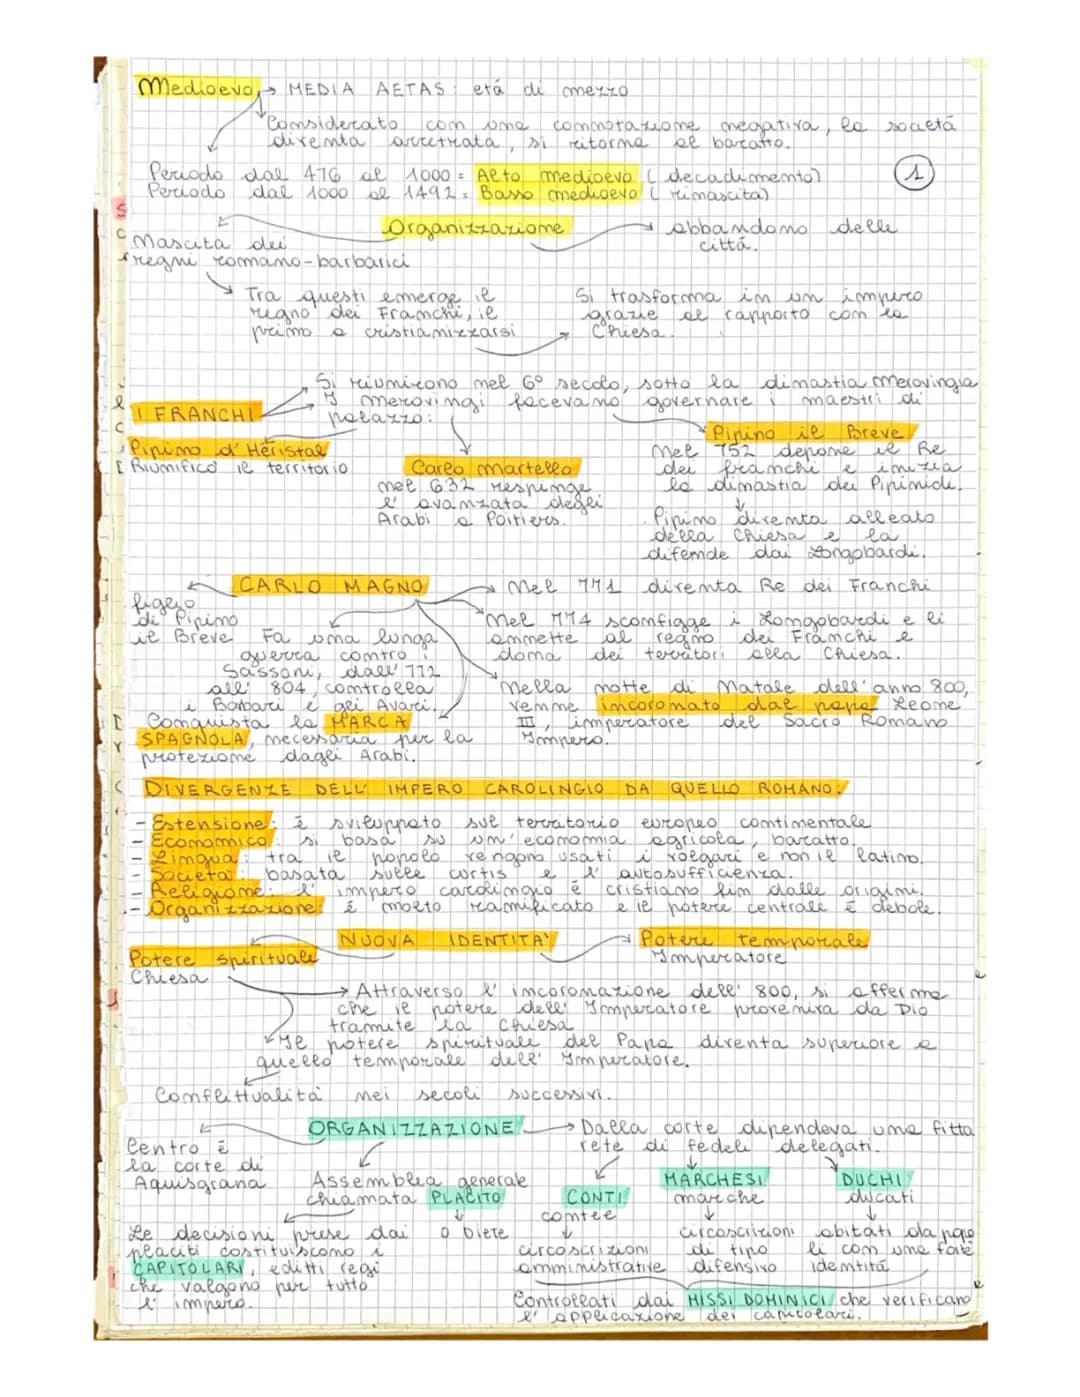 Medioevo → MEDIA AETAS: etá di mezzo
Considerato con una connotazione negativa, la societá
diventa arretrata, si ritorna al baratto.
Periodo dal 476 al 1000 = Alto medioevo (decadimento)
Periodo dal 1000 al 1492 = Basso medioevo (rinascita)
1
Organizzazione
abbandono delle
cittá.
Nascita dei
regni romano-barbarici
Tra questi emerge il
regno dei Franchi, il
primo a cristianizzarsi
Si trasforma in un impero
grazie al rapporto con la
Chiesa.
I FRANCHI
Si riunirono nel 6° secolo, sotto la dinastia merovingia
I merovingi facevano governare i maestri di
palazzo:
Pipino d'Héristal
Riunificó il territorio
Carlo Martello
nel 632 respinge
l'avanzata degli
Arabi a Poitiers.
Pipino il Breve
Nel 752 depone il Re
dei franchi e inizia
la dinastia dei Pipinidi.
Pipino diventa alleato
della Chiesa e la
difende dai Longobardi.
CARLO MAGNO
figlio
di Pipino
il Breve
Nel 771 diventa Re dei Franchi
Nel 774 sconfigge i Longobardi e li
ammette al regno dei Franchi e
dona dei territori alla Chiesa.
Fa una lunga
guerra contro i
Sassoni, dall'772
all'804, controlla
i Barbari e gli Avari.
Conquista la MARCA
SPAGNOLA, necessaria per la
protezione dagli Arabi.
Nella notte di Natale dell'anno 800,
venne incoronato dal papa Leone
III, imperatore del Sacro Romano
Impero.
DIVERGENZE DELL'IMPERO CAROLINGIO DA QUELLO ROMANO:
- Estensione: é sviluppato sul territorio europeo continentale
- Economico: si basa su un'economia agricola, baratto.
- Lingua: tra il popolo vengono usati i volgari e non il latino.
- Societá: basata sulle curtis e l'autosufficienza.
- Religione: l'impero carolingio é cristiano fin dalle origini.
- Organizzazione: é molto ramificato e il potere centrale é debole.
NUOVA IDENTITA'
Potere spirituale
Chiesa
Potere temporale
Imperatore
Attraverso l'incoronazione dell'800, si afferma
che il potere dell'Imperatore proveniva da Dio
tramite la Chiesa
Il potere spirituale del Papa diventa superiore a
quello temporale dell'Imperatore.
Conflittualitá nei secoli successivi.
ORGANIZZAZIONE
Centro é
la corte di
Aquisgrana
Assemblea generale
chiamata PLACITO
Dalla corte dipendeva una fitta
rete di fedeli delegati.
CONTI
contee
circoscrizioni
amministrative
MARCHESI
marche
circoscrizioni
di tipo
difensivo
DUCHI
ducati
abitati da popo
li con una forte
identitá
Le decisioni prese dai
placiti costituiscono i
CAPITOLARI, editti regi
che valgono per tutto
l'impero.
Controllati dai MISSI DOMINICI che verificano
l'applicazione dei capitolari.